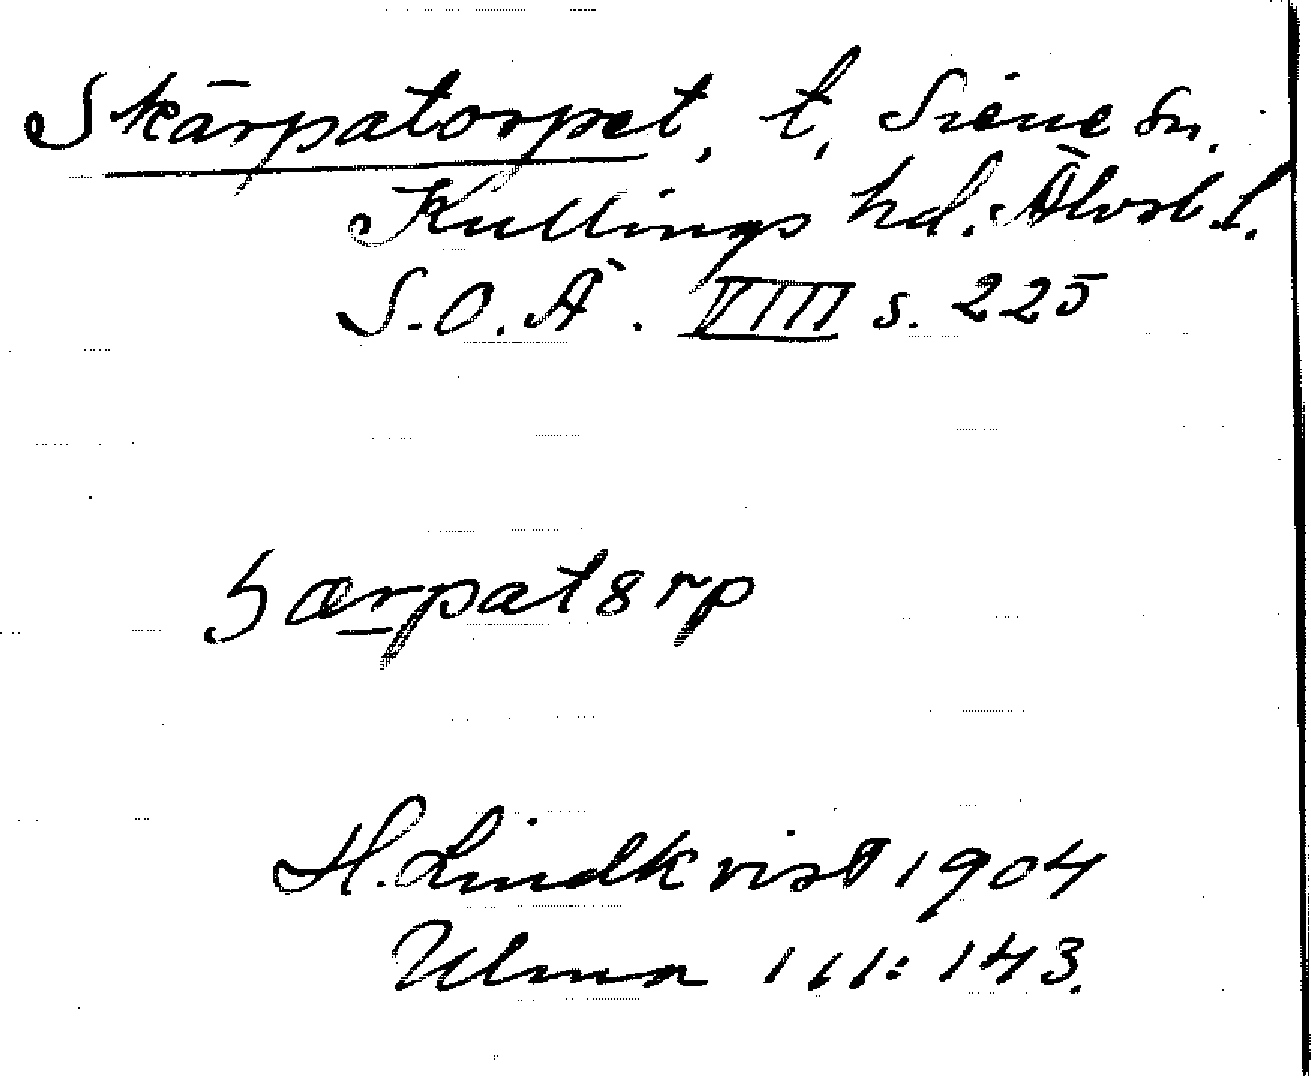 Skärpatorpet, t, Siene sn.
Kullings hd. Älvsb. l.
S.O.Ä. VIII s. 225
særpat8rp
H. Lindkvist 1904
Ulma 111:143.